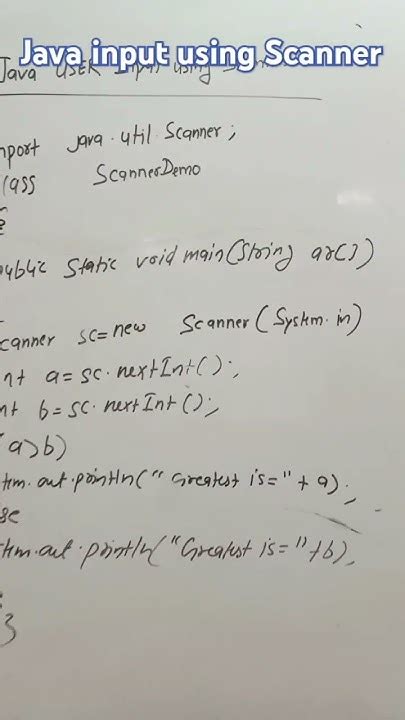 Java input using Scanner
Java USER Input using
mport java.util.Scanner;
class ScannerDemo
public static void main(String ar[])
canner sc=new Scanner(System.in)
nt a=sc.nextInt();
nt b=sc.nextInt();
(a>b)
tem.out.println("Greatest is="+a);
se
tem.out.println("Greatest is="+b);
}